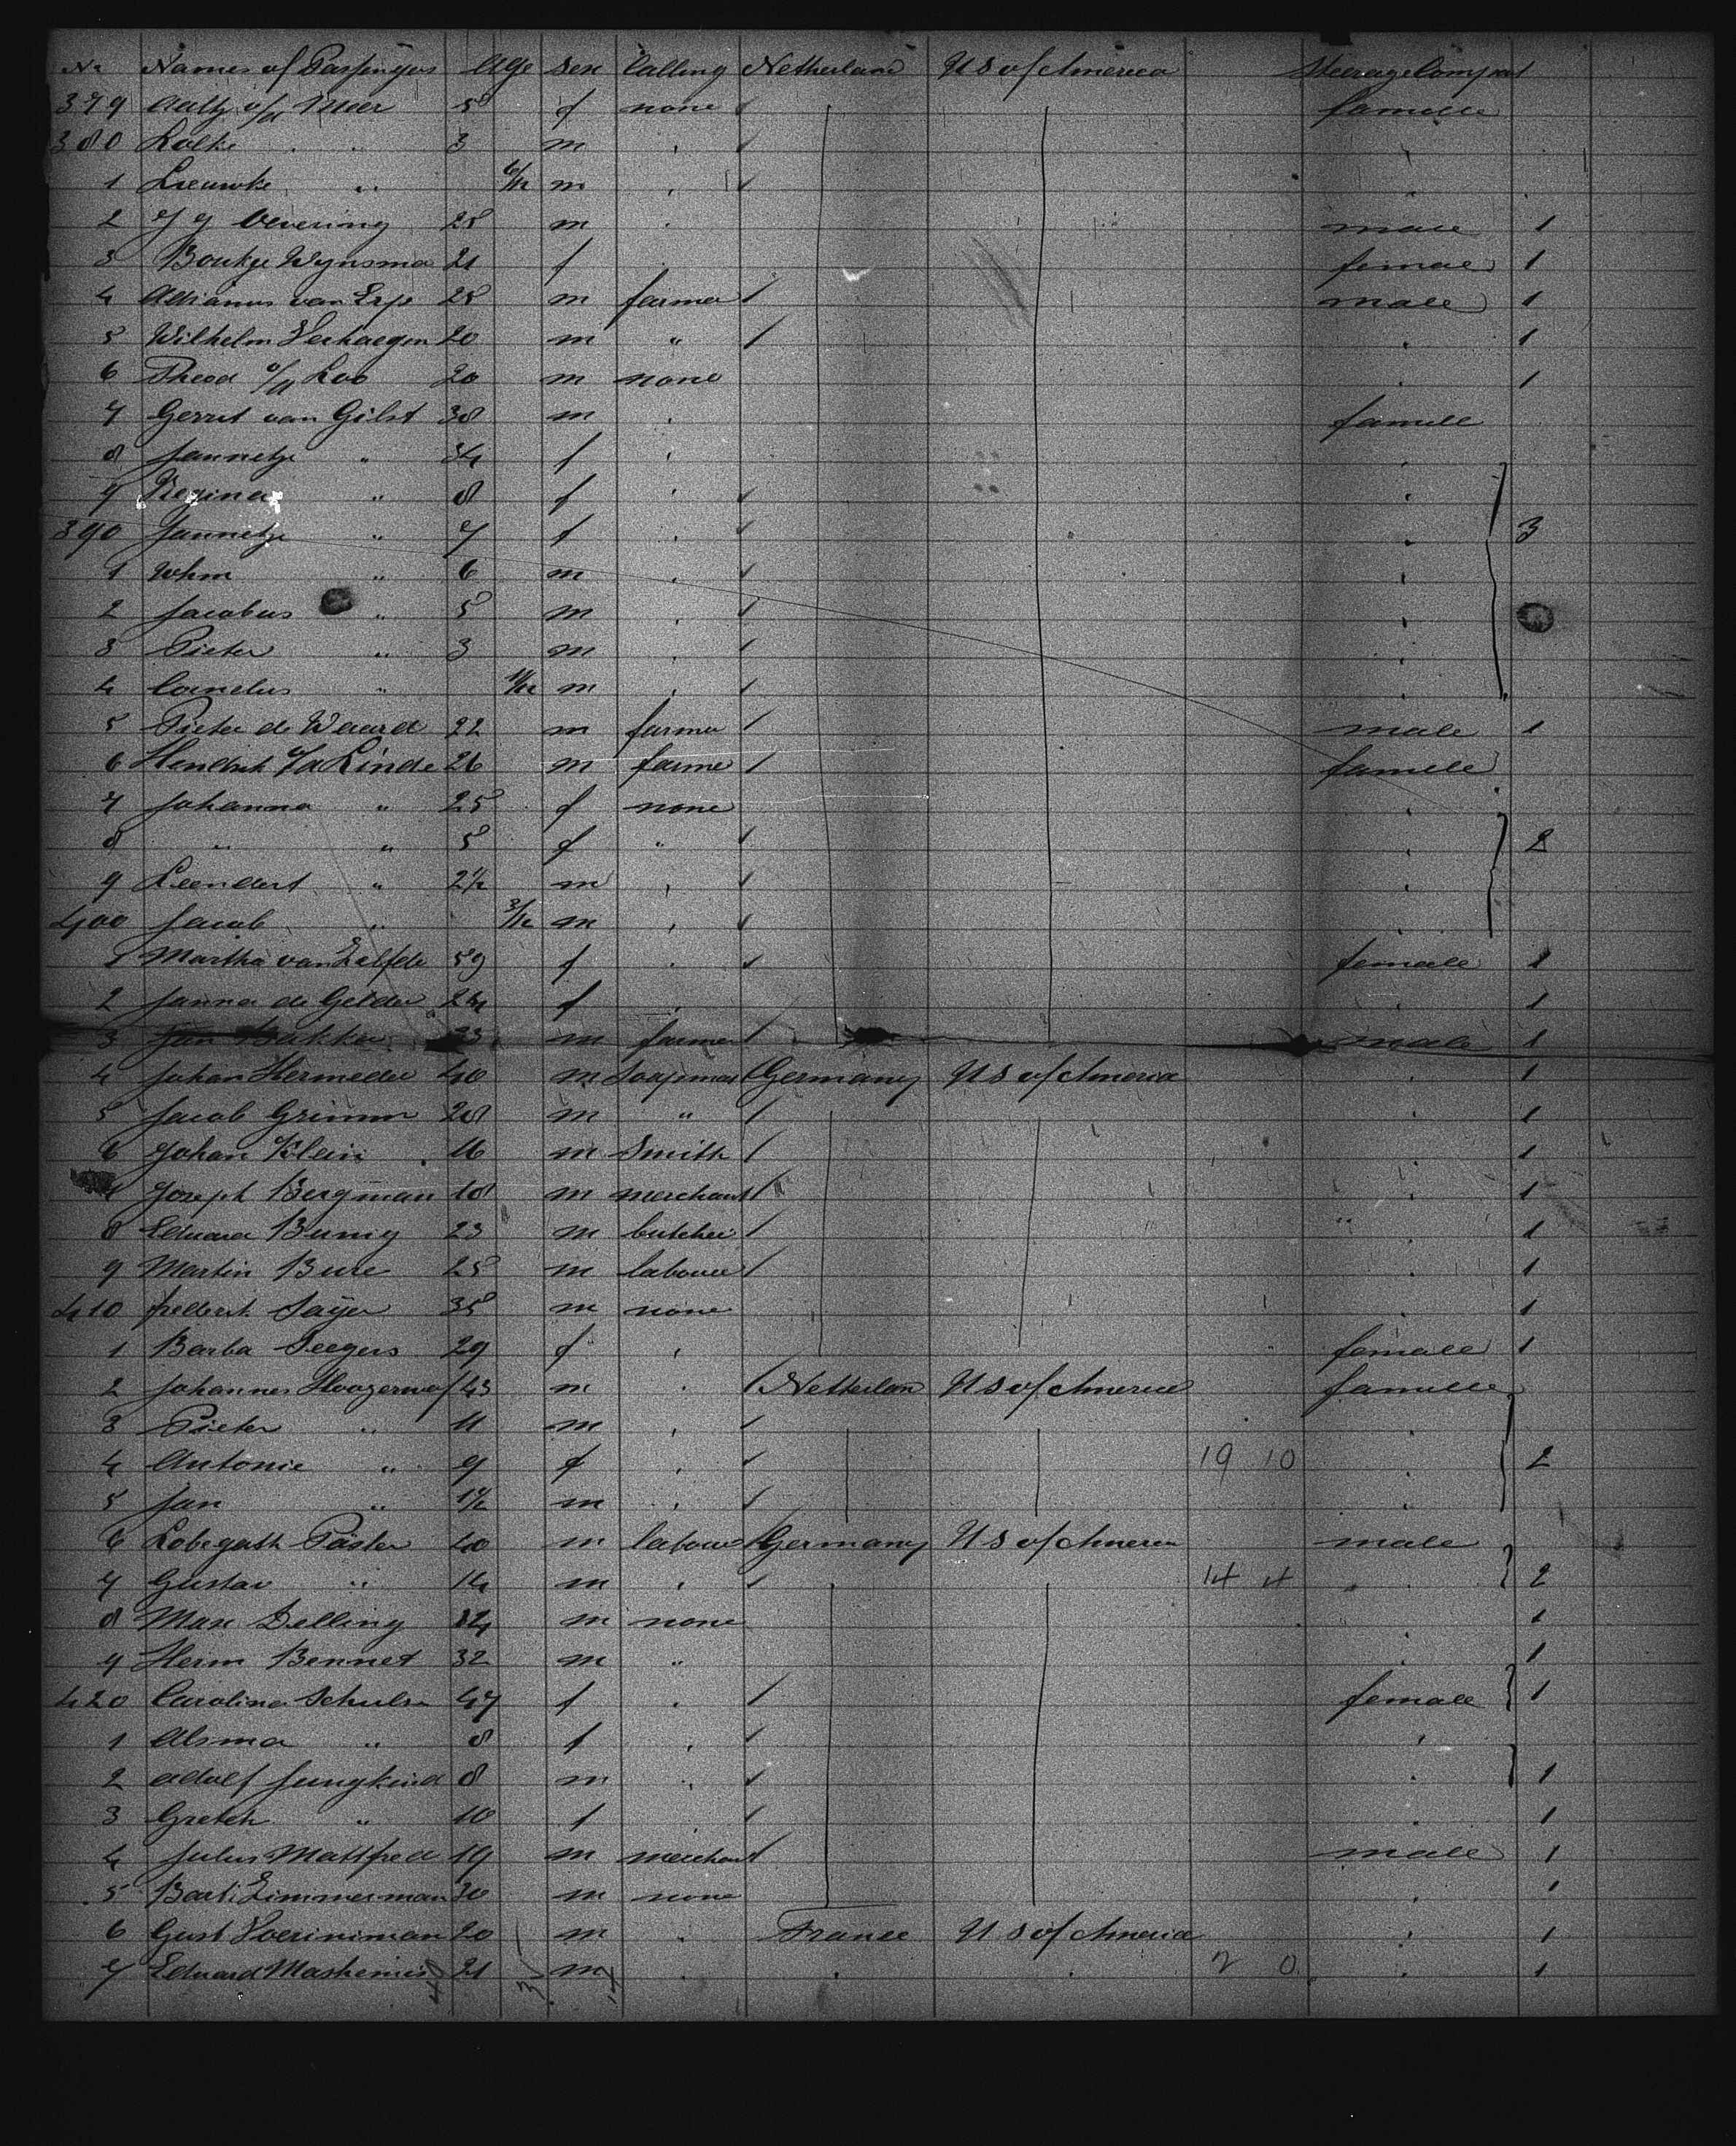 No Names of Passengers Age Sex Calling Netherland U S of America Steerage Compart
379 Aaltj v/d Meer 5 f none famille
380 Lolke " 3 m "
1 Lieuwke " 6/12 m "
2 Y Y Oevering 25 m " male 1
3 Boukje Wynsma 21 f " female 1
4 Adrianus van Erp 25 m farmer male 1
5 Wilhelm Verhaegen 20 m " " 1
6 Theod v/d Loo 20 m none " 1
7 Gerrit van Gilst 38 m " famille
8 Jannetje " 34 f " "
9 Regina " 8 f " "
390 Jannetje " 7 f " " 3
1 Whm " 6 m " "
2 Jacobus " 5 m " "
3 Pieter " 3 m " "
4 Cornelus " 11/12 m " "
5 Pieter de Waard 22 m farmer male 1
6 Hendrik v/d Linde 26 m farmer famille
7 Johanna " 25 f none "
8 " " 5 f " " 2
9 Leendert " 2 1/2 m " "
400 Jacob " 3/12 m " "
1 Martha van 59 f " female 1
2 Janna de Gelder 24 f " " 1
3 Jan Bakker 23 m farmer male 1
4 Johan Hermeder 40 m Germany U S of America " 1
5 Jacob Grimm 28 m " " 1
6 Johan Klein 16 m Smith " 1
Joseph Bergman 18 m merchant " 1
8 Eduard Bunig 23 m butcher " 1
9 Martin Bure 25 m labourer " 1
410 frederik Sayer 35 m none " 1
1 Barba Seegers 29 f " female 1
2 Johannes Hoogerwerf 43 m " Netherlan U S of America famille
3 Pieter " 11 m " "
4 Antonie " 9 f " 19 10 " 2
5 Jan " 1 1/2 m " "
6 Lobegath Päsler 40 m labour Germany U S of America male
7 Gustav " 14 m " 14 4 " 2
8 Max Delling 24 m none " 1
9 Herm Bennet 32 m " " 1
420 Carolina Schulse 47 f " female 1
1 Alsma " 8 f " "
2 Adolf Jungkind 8 m " " 1
3 Greteh " 10 f " " 1
4 Julus Mattfed 19 m merchant male 1
5 Barti Zimmerman 30 m none " 1
6 Gust 20 m " France U S of America " 1
7 Eduard 21 m " " " 2 0 " 1